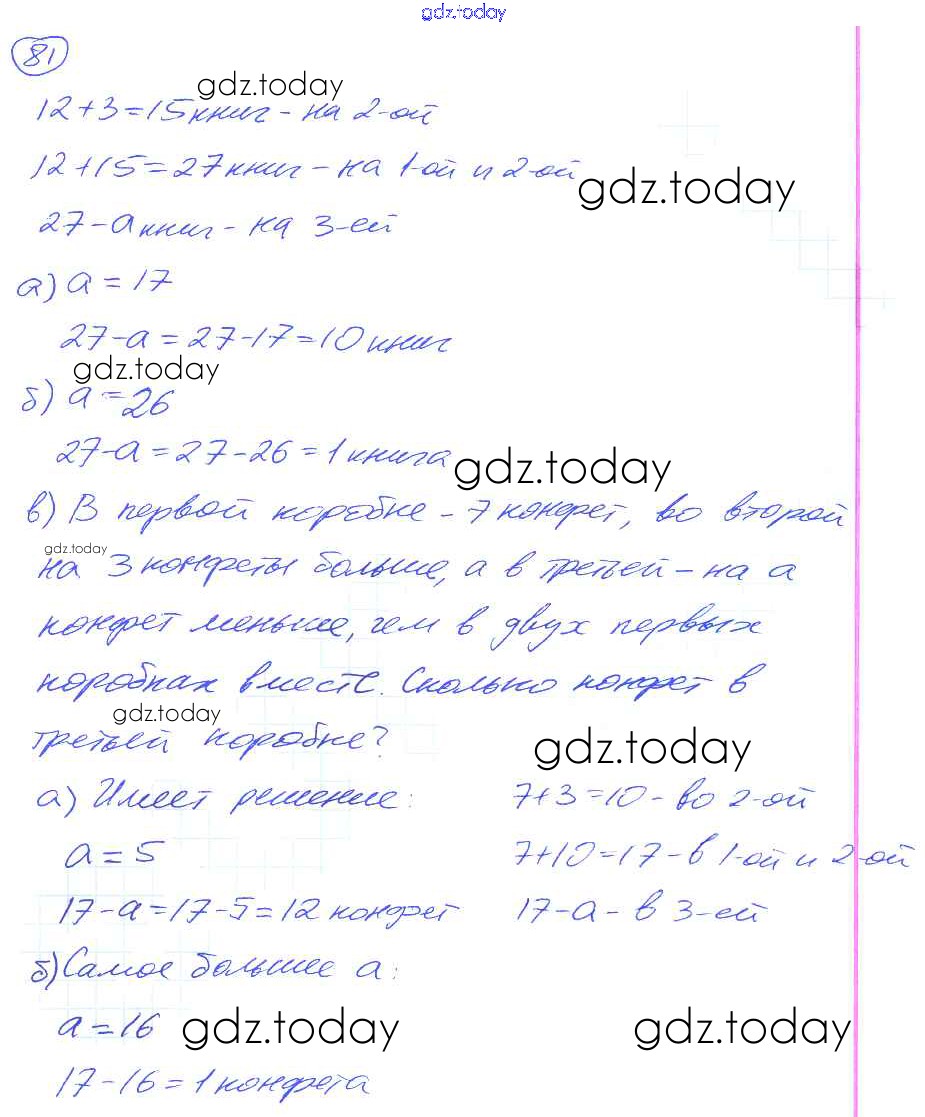 gdz.today
81
gdz.today
12+3=15 книг - на 2-ой
12+15=27 книг - на 1-ой и 2-ой
gdz.today
27-а книг - на 3-ей
а) а = 17
27-а = 27-17=10 книг
gdz.today
б) а = 26
27-а = 27-26 = 1 книга
gdz.today
в) В первой коробке - 7 конфет, во второй
gdz.today
на 3 конфеты больше, а в третьей - на а
конфет меньше, чем в двух первых
коробках вместе. Сколько конфет в
gdz.today
третьей коробке?
gdz.today
а) Имеет решение: 7+3=10 - во 2-ой
а = 5 7+10=17 - в 1-ой и 2-ой
17-а=17-5=12 конфет 17-а - в 3-ей
б) Самое большее а:
а = 16
gdz.today gdz.today
17-16=1 конфета